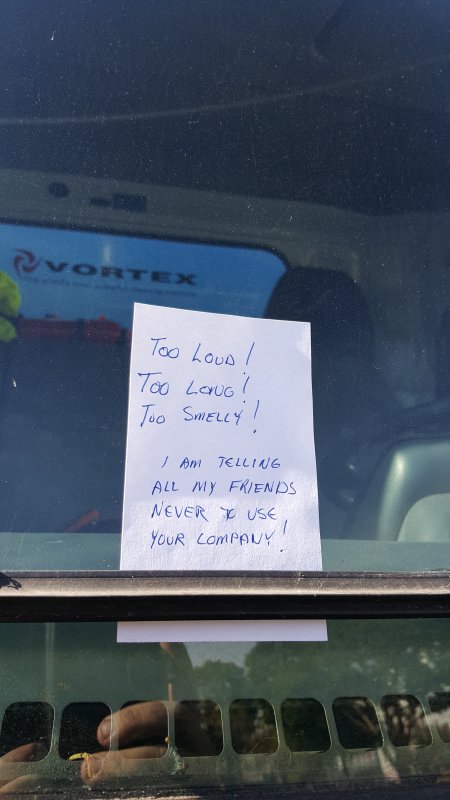 VORTEX
Too Loud!
Too Long!
Too Smelly!
I AM TELLING
ALL MY FRIENDS
NEVER TO USE
YOUR COMPANY!